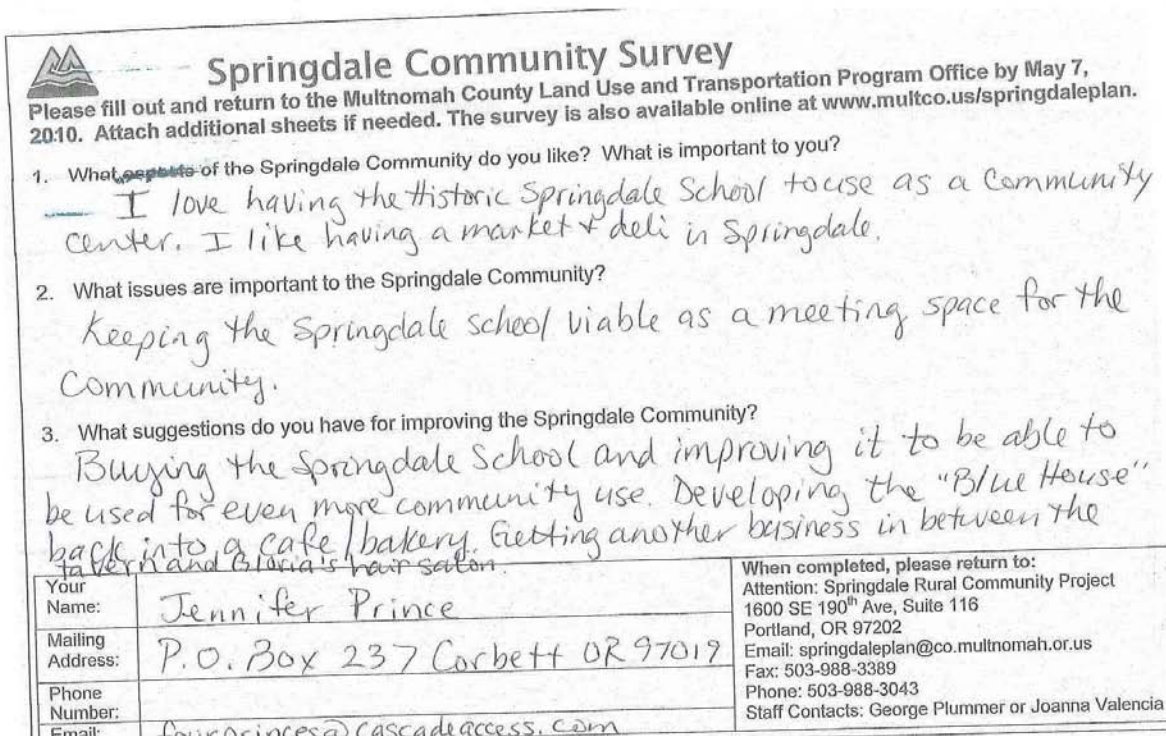 Springdale Community Survey
Please fill out and return to the Multnomah County Land Use and Transportation Program Office by May 7,
2010. Attach additional sheets if needed. The survey is also available online at www.multco.us/springdaleplan.
1. What aspects of the Springdale Community do you like? What is important to you?
I love having the Historic Springdale School to use as a Community
center. I like having a market & deli in Springdale.
2. What issues are important to the Springdale Community?
Keeping the Springdale school viable as a meeting space for the
Community.
3. What suggestions do you have for improving the Springdale Community?
Buying the Springdale School and improving it to be able to
be used for even more community use. Developing the "Blue House"
back into a cafe/bakery. Getting another business in between the
tavern and Gloria's hair salon.
Your
Name: Jennifer Prince
Mailing
Address: P.O. Box 237 Corbett OR 97019
Phone
Number:
Email: fourprinces@cascadeaccess.com
When completed, please return to:
Attention: Springdale Rural Community Project
1600 SE 190th Ave, Suite 116
Portland, OR 97202
Email: springdaleplan@co.multnomah.or.us
Fax: 503-988-3389
Phone: 503-988-3043
Staff Contacts: George Plummer or Joanna Valencia